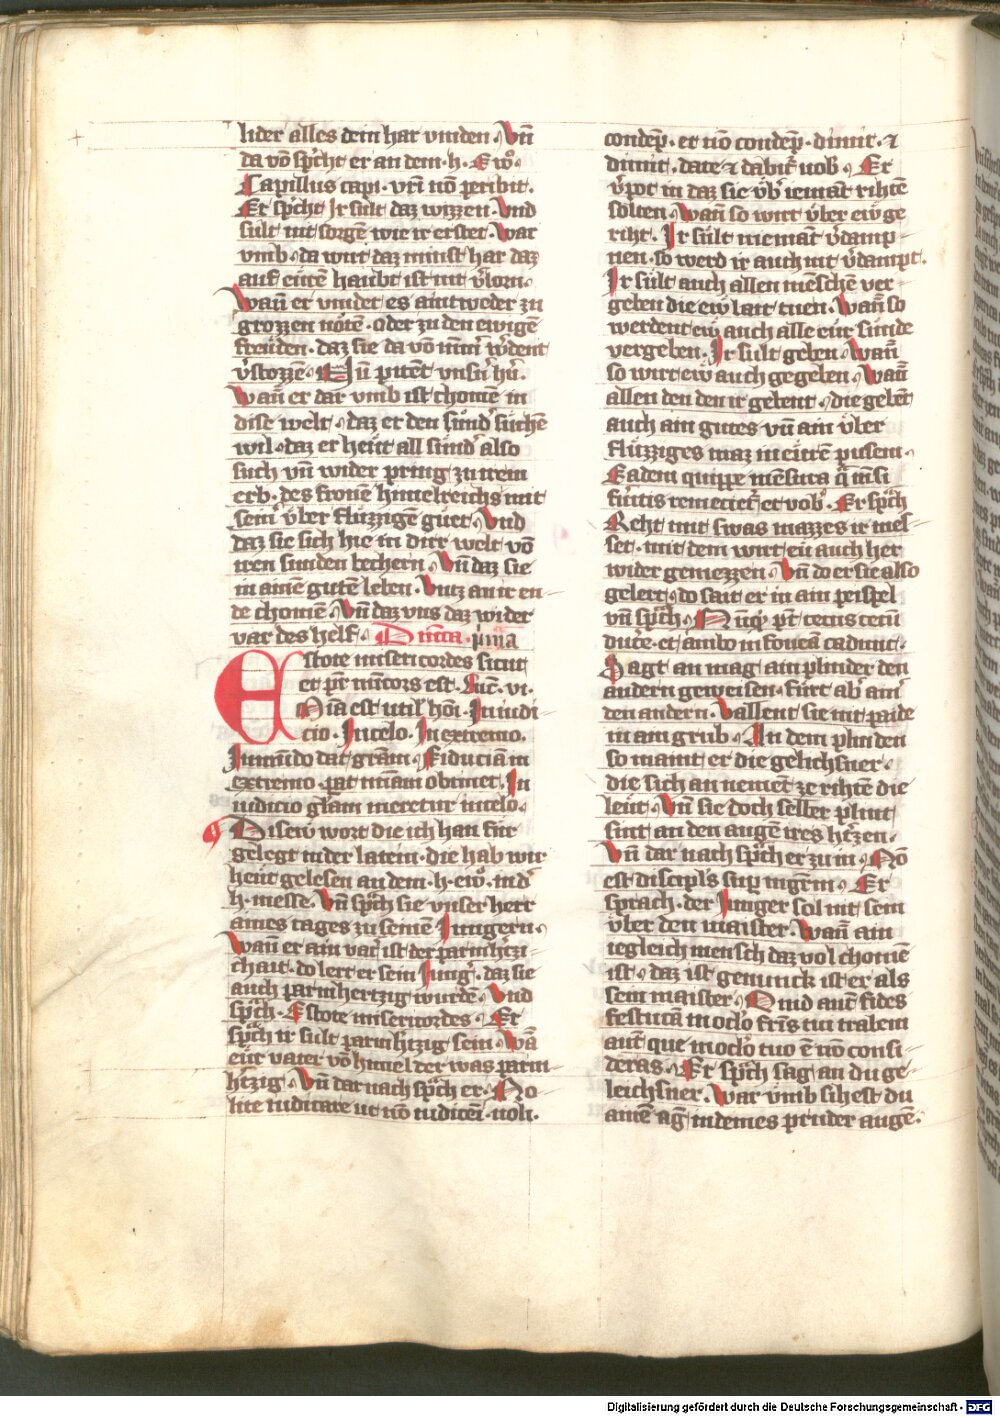 lider alles dein har vinden. Vn̄
da vō sp̄cht er an dem .h. Ewᵒ.
Capillus capi. vr̄i nō peribit.
Er sp̄cht Ir sult daz wizzen. Vnd
sult nit sorgē wie ir erstet. War
vmb. da wirt daz minst har daz
auf eurē haubt ist nit v̄lorn.
Wan̄ er vindet es aintweder zu
grozzen nötē. oder zu den ewigē
freuden. daz sie da vō nim̄ wˢdent
v̄stozzē.
Wan̄ er dar vmb ist chomē in
dise welt. daz er den sündˢ suchē
wil. daz er heut all sündˢ also
such vn̄ wider pring zu irem
erb. des fronē himelreichs mit
seinˢ v̄ber fluzzigē guet. Vnd
daz sie sich hie in dirr welt vō
iren sunden bechern. Vn̄ daz sie
in ainē gutē leben. Vntz an ir en-
de chomē. Vn̄ daz vns daz wider
var des helf. Dn̄ica p̄ma
Estote misericordes sicut
et pr̄ mi͞cors est. Luc̄. vi.
Mīa est utilˢ hōi. In iudi-
cio. In celo. In extremo.
In mūdo dat grām. Fiduciā in
extremo. par miām obtinet. In
iudicio glām meretur in celo.
Disew wort die ich han für
gelegt in der latein. die hab wir
heut gelesen an dem .h. ewᵒ. in dˢ
h. messe. Vn̄ sp̄ch sie vnser herr
aines tages zu seinē Iungern.
Wan̄ er ain vatˢ ist der parmhˢzi-
chait. do lert er sein Iungˢ. daz sie
auch parmhertzig wurdē. Vnd
sp̄ch. Estote misericordes. Er
sp̄ch ir sult parmhˢtzig sein. Wā
eur vater vō himel der was parm
hˢtzig. Vn̄ dar nach sp̄ch er. No
lite iudicare ut nō iudicē̄i. noli.
condep̄. et nō condep̄. dimit. ⁊
dimit. date ⁊ dabitˢ uob. Er
v̄pot in daz sie v̄bˢ iemāt rihtē
solten. Wan̄ so wirt v̄ber ew ge
riht. Ir sult niemāt v̄damp-
nen. so werd ir auch nit v̄dampt.
Ir sült auch allen mēschē ver-
geben die ew lait tuen. Wan̄ so
werdent ew auch alle eur sunde
vergeben. Ir sult geben. Wan̄
so wirt ew auch gegeben. Wan̄
allen den den ir gebent. die gebēt
auch ain gutes vn̄ ain v̄ber
fluzziges maz in eurē pusem.
Eadem quippe mēsura q̄ mēsi
fuitis remecietˢ et vobˢ. Er sp̄ch
Reht mit swas mazzes ir mes-
set. mit dem wirt eu auch her
wider gemezzen. Vn̄ do er sie also
gelert. do sait er in ain peispel
vn̄ sp̄ch. Nūqͥ pt̄ cecus cecū
ducē. et ambo in foueā cadunt.
Sagt an mag ain plinder den
andern geweisen. fürt abˢ ainˢ
den andern. Vallent sie nit paide
in ain grub. An dem plinden
so maint er die gelichsner.
die sich an nement ze rihtē die
leut. Vn̄ sie doch selber plint
sint an den augē ires hˢzen.
Vn̄ dar nach sp̄ch er zu in. Nō
est discipl̄s sup̄ mgr̄m. Er
sprach. der Iunger sol nit sein
v̄ber den maister. Wan̄ ain
iegleich mensch daz vol chomē
ist. daz ist genunck ist er als
sein maister. Quid aut̄ uides
festucā in oclo fr̄is tui trabem
aut̄ que in oclo tuo ē nō consi-
deras. Er sp̄ch sag an du ge-
leichsner. War vmb sihest du
ainē aḡ in deines pruder augē.
Digitalisierung gefördert durch die Deutsche Forschungsgemeinschaft - DFG